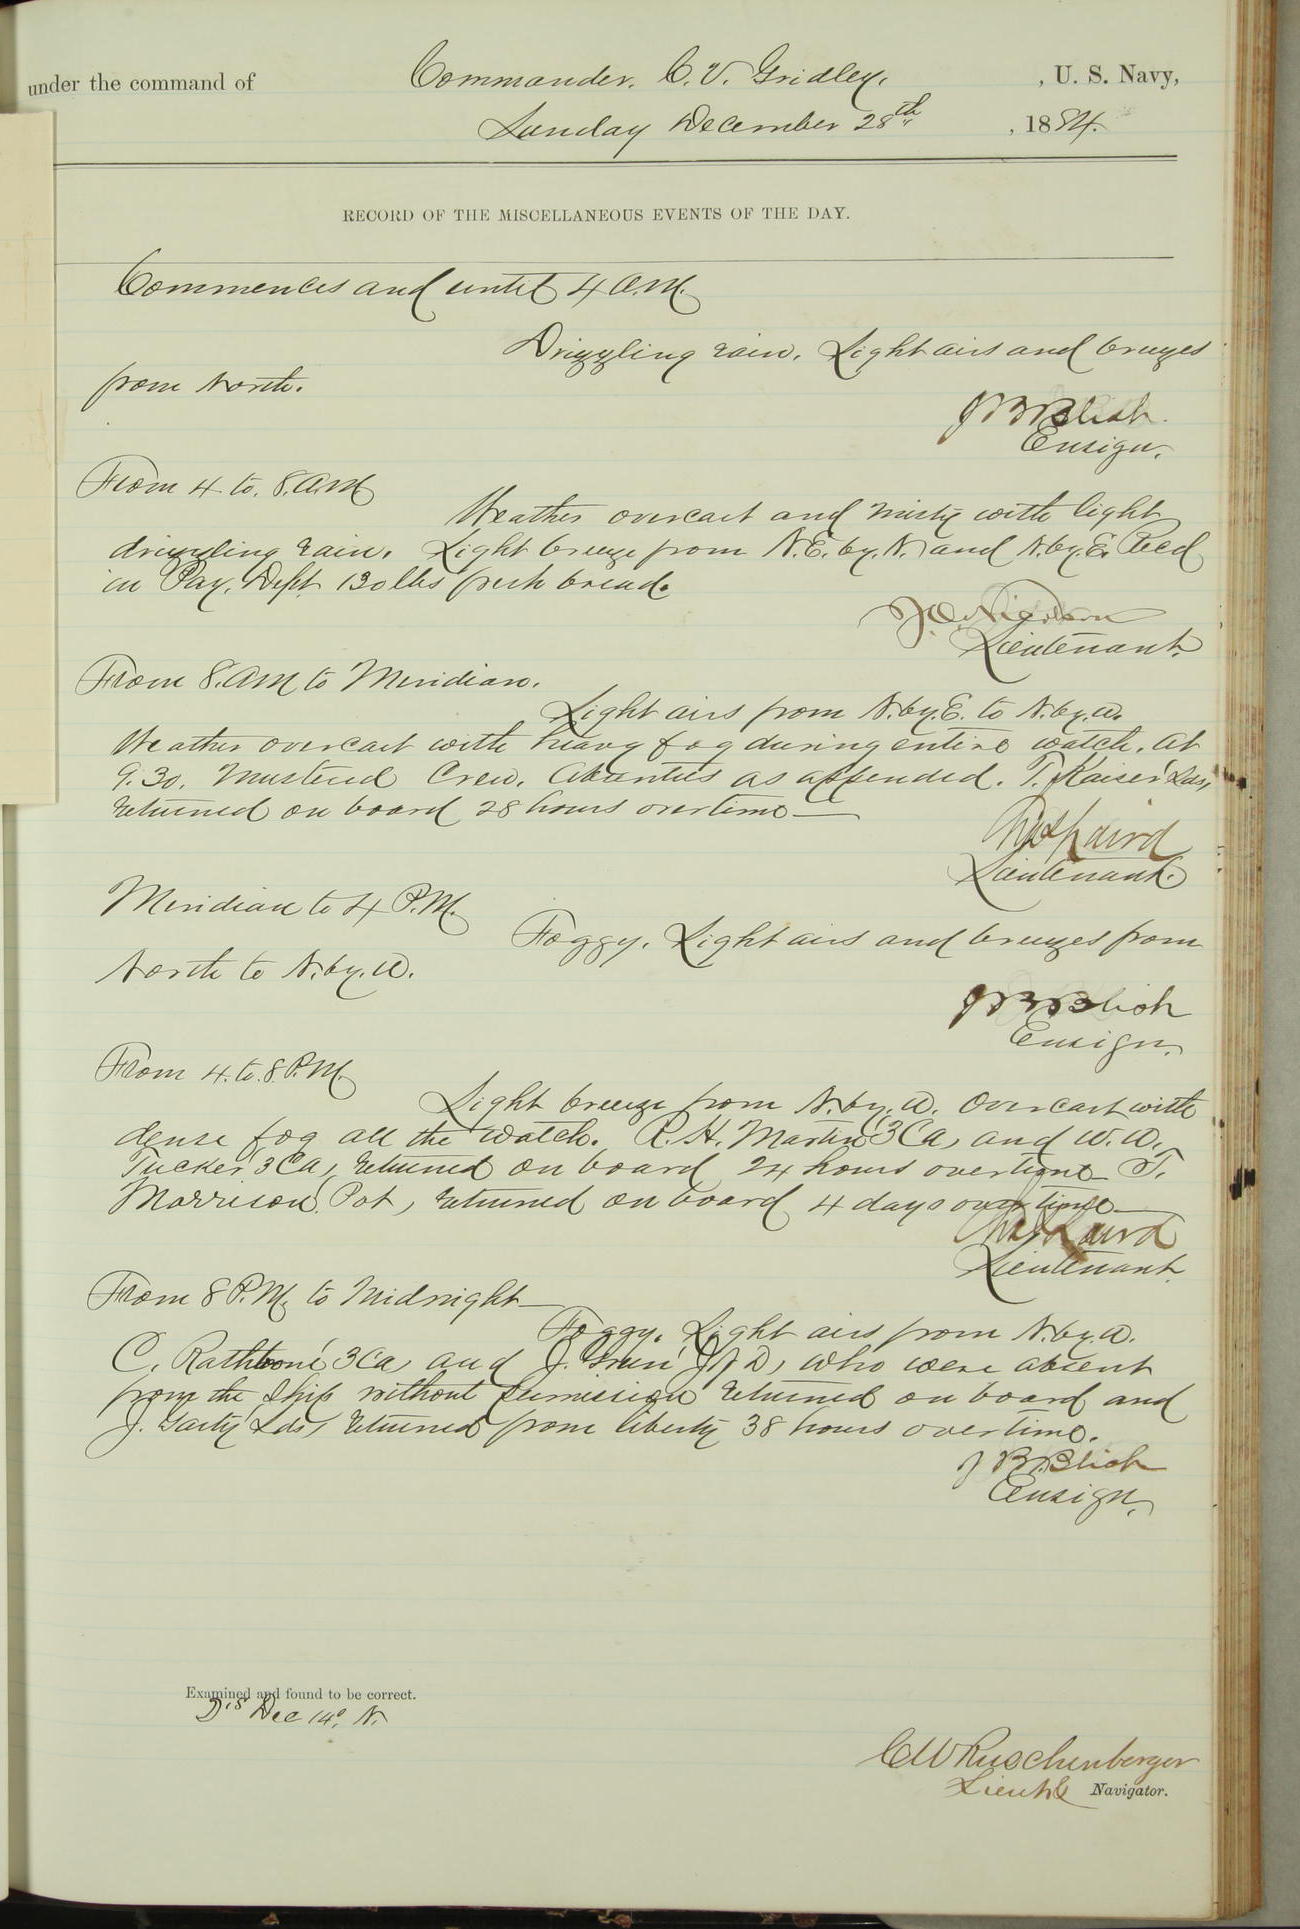 under the command of Commander. C. V. Gridley. , U. S. Navy,
Sunday December 28th , 1884.
RECORD OF THE MISCELLANEOUS EVENTS OF THE DAY.
Commences and until 4 A.M.
Drizzling rain. Light airs and breezes
from North.
J B Blish.
Ensign.
From 4 to. 8. A.M
Weather overcast and misty with light
drizzling rain. Light breeze from N.E. by. N. and N. by. E. Recd
in Pay. Dept 130 lbs fresh bread.
Lieutenant.
From 8. AM to Meridian.
Light airs from N. by. E. to N. by. W.
Weather overcast with heavy fog during entire watch. At
9.30. Mustered Crew. Absentees as appended. T. Kaiser Lds,
returned on board 28 hours overtime —
Chas Laird
Lieutenant.
Meridian to 4 P.M.
Foggy. Light airs and breezes from
North to N. by. W.
J B Blish
Ensign.
From 4. to. 8. P.M.
Light breeze from N. by. W. Overcast with
dense fog all the watch. R. H. Martin (3Ca) and W. W.
Tucker (3Ca) returned on board 24 hours overtime T.
Morrison Pot, returned on board 4 days overtime —
Chas Laird
Lieutenant
From 8 P.M. to Midnight —
Foggy. Light airs from N. by. W.
C. Rathbone (3Ca) and J. who were absent
from the Ship without permission returned on board and
J. Lds, returned from liberty 38 hours overtime.
J B. Blish
Ensign.
Examined and found to be correct.
Dec 14° N.
C W Ruschenberger
Lieut Navigator.